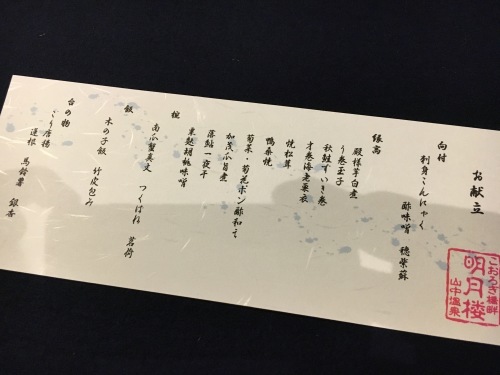 お献立
向付
刺身こんにゃく
酢味噌 穂紫蘇
縁高
殿様芋白煮
う巻玉子
秋鮭ずいき巻
才巻海老栗衣
焼松茸
鴨桑焼
菊菜・菊花ポン酢和え
加茂瓜旨煮
落鮎一夜干
粟麩胡桃味噌
椀
南瓜蟹真丈 つくばね 茗荷
飯
木の子飯 竹皮包み
台の物
ごり唐揚
蓮根 馬鈴薯 銀杏
こおろぎ橋畔
明月楼
山中温泉